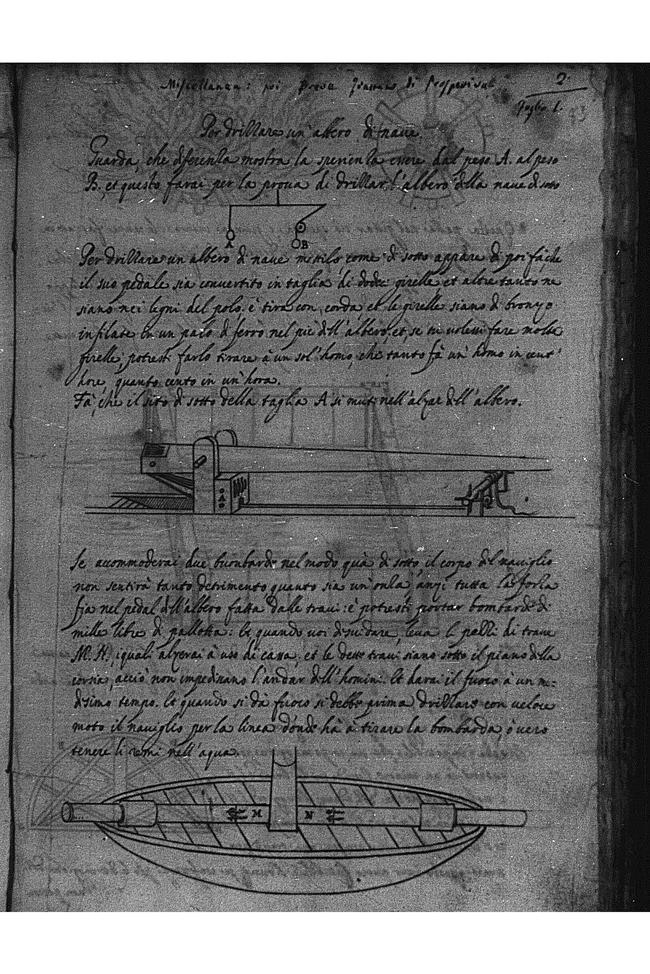 2.
Miscellanea:
foglio 1.
33
Per drillare un' albero di nave.
Guarda, che diferenta mostra la sperienta essere dal peso A. al peso
B. et questo farai per la prova di drillar l'albero della nave di sotto
A B
Per drillare un albero di nave mettilo come di sotto appare di poi fà che
il suo pedale sia convertito in taglia di dodci girelle et altre tanto ne
siano nei legni del polo. è tira con corda et le girelle siano di bronzo
infilate in un palo di ferro nel piè dell'albero, et se tu volessi fare molte
girelle, potresti farlo tirare à un sol'homo che tanto fà un' homo in cent'
hore, quanto cento in un'hora.
Fà, che il sito di sotto della taglia A si muti nell'alzar dell'albero.
A
Se acommoderai due bombarde nel modo quà di sotto, il corpo del naviglio
non sentirà tanto detrimento quanto sia un'onla, anzi tutta la forla
fia nel pedal dell'albero fatta dalle travi: è potresti portar bombarde di
mille libre di pallotta: et quando voi discaricare, leva li palli di trave
M. N. i quali alzerai à uso di casa et le dette travi siano sotto il piano della
corsia, acciò non impedischano l'andar dell'homini. et darai il fuoco à un me:
desimo tempo. et quando si dà fuoco si debbe prima drillare con veloce
moto il naviglio per la linea donde hà à tirare la bombarda, ò vero
tenere li remi nell'aqua.
M N